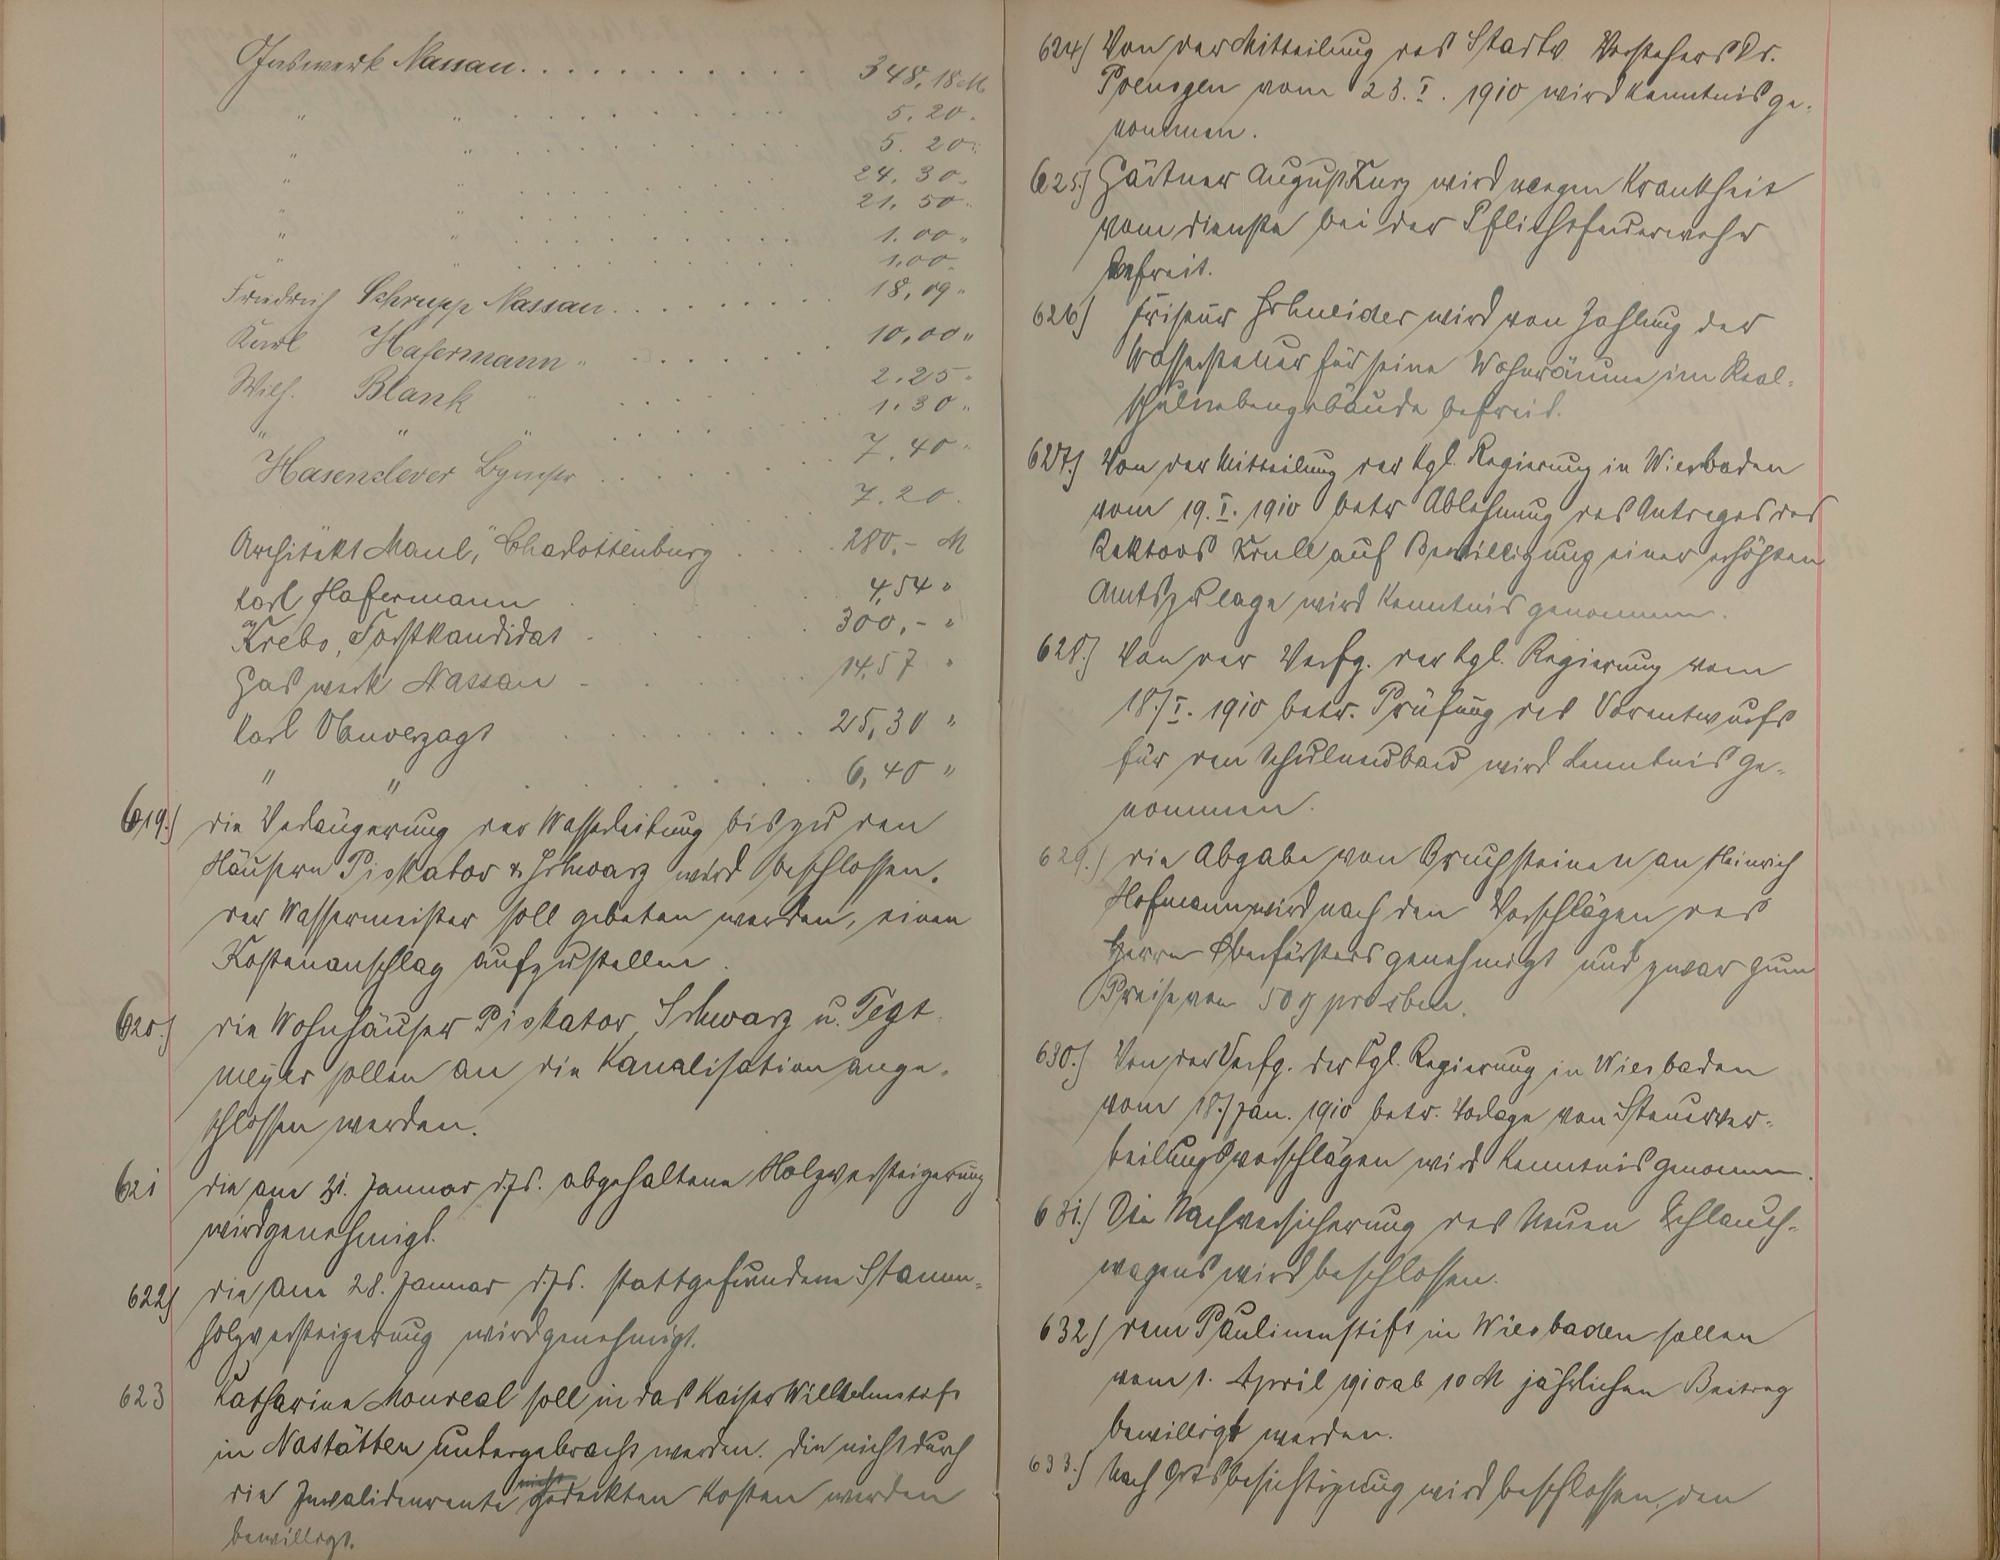 Gaswerk Nassau . . . . . . . . . . . . 348,18 M
" " . . . . . . . . . 5.20 "
" " . . . . . . . . . 5.20 "
" " . . . . . . . . . 24.30 "
" " . . . . . . . . . 21.50 "
" " . . . . . . . . . 1.00 "
" " . . . . . . . . . 1,00 "
Friedrich Schrupp Nassau . . . . . . . 18,09 "
Karl Hafermann " . . . . . . . 10,00 "
Wilh. Blank " . . . . . . 2.25 "
" " " . . . . . . 1.30 "
Hasenclever . . . . . . 7.40 "
7.20 "
Architekt Maul, Charlottenburg . . . . 280,- M
Karl Hafermann . . . . 4,54 "
Krebs, Forstkandidat . . . . 300,- "
Gaswerk Nassau . . . . 14,57 "
Karl Unverzagt . . . . . . . . 25,30 "
" " . . . . . 6,40 "
619.) die Verlängerung der Wasserleitung bis zu den
Häusern Piskator & Schwarz wird beschlossen.
der Wassermeister soll gebeten werden, einen
Kostenanschlag aufzustellen.
620.) die Wohnhäuser Piskator, Schwarz u. Tegt-
meyer sollen an die Kanalisation ange-
schlossen werden.
621 die am 21. Januar d.Js. abgehaltene Holzversteigerung
wird genehmigt.
622) die am 28. Januar d.Js. stattgefundene Stamm-
holzversteigerung wird genehmigt.
623 Katharina Monreal soll in das Kaiser Wilhelmstift
in Nastätten untergebracht werden. die nicht durch
die Invalidenrente gedeckten Kosten werden
bewilligt.
624) Von der Mitteilung des Stadtv. Vorstehers Dr.
Poensgen vom 23.I.1910 wird Kenntnis ge-
nommen.
625.) Gärtner August Kurz wird wegen Krankheit
vom dienste bei der Pflichtfeuerwehr
befreit.
626) Friseur Schneider wird von Zahlung der
Wassersteuer für seine Wohnräume im Real-
schulnebengebäude befreit.
627.) Von der Mitteilung der Kgl. Regierung in Wiesbaden
vom 19.I.1910 betr Ablehnung des Antrages des
Rektors Krull auf Bewilligung einer erhöhten
Amtszulage wird Kenntnis genommen.
628.) Von der Verfg. der Kgl. Regierung vom
18./I. 1910 betr. Prüfung des Vorentwurfs
für den Schulneubau wird Kenntnis ge-
nommen.
629.) die Abgabe von Bruchsteinen an Heinrich
Hofmann wird nach den Vorschlägen des
Herrn Oberförsters genehmigt und zwar zum
Preise von 50 ₰ pro cbm.
630.) Von der Verfg. der Kgl. Regierung in Wiesbaden
vom 18./Jan. 1910 betr. Vorlage von Steuerver-
teilungsvorschlägen wird Kenntnis genommen.
631.) Die Nachversicherung des Neuen Schlauch-
wagens wird beschlossen.
632) dem Paulinenstift in Wiesbaden sollen
vom 1. April 1910 ab 10 M jährlichen Beitrag
bewilligt werden.
633.) Nach Ortsbesichtigung wird beschlossen, den